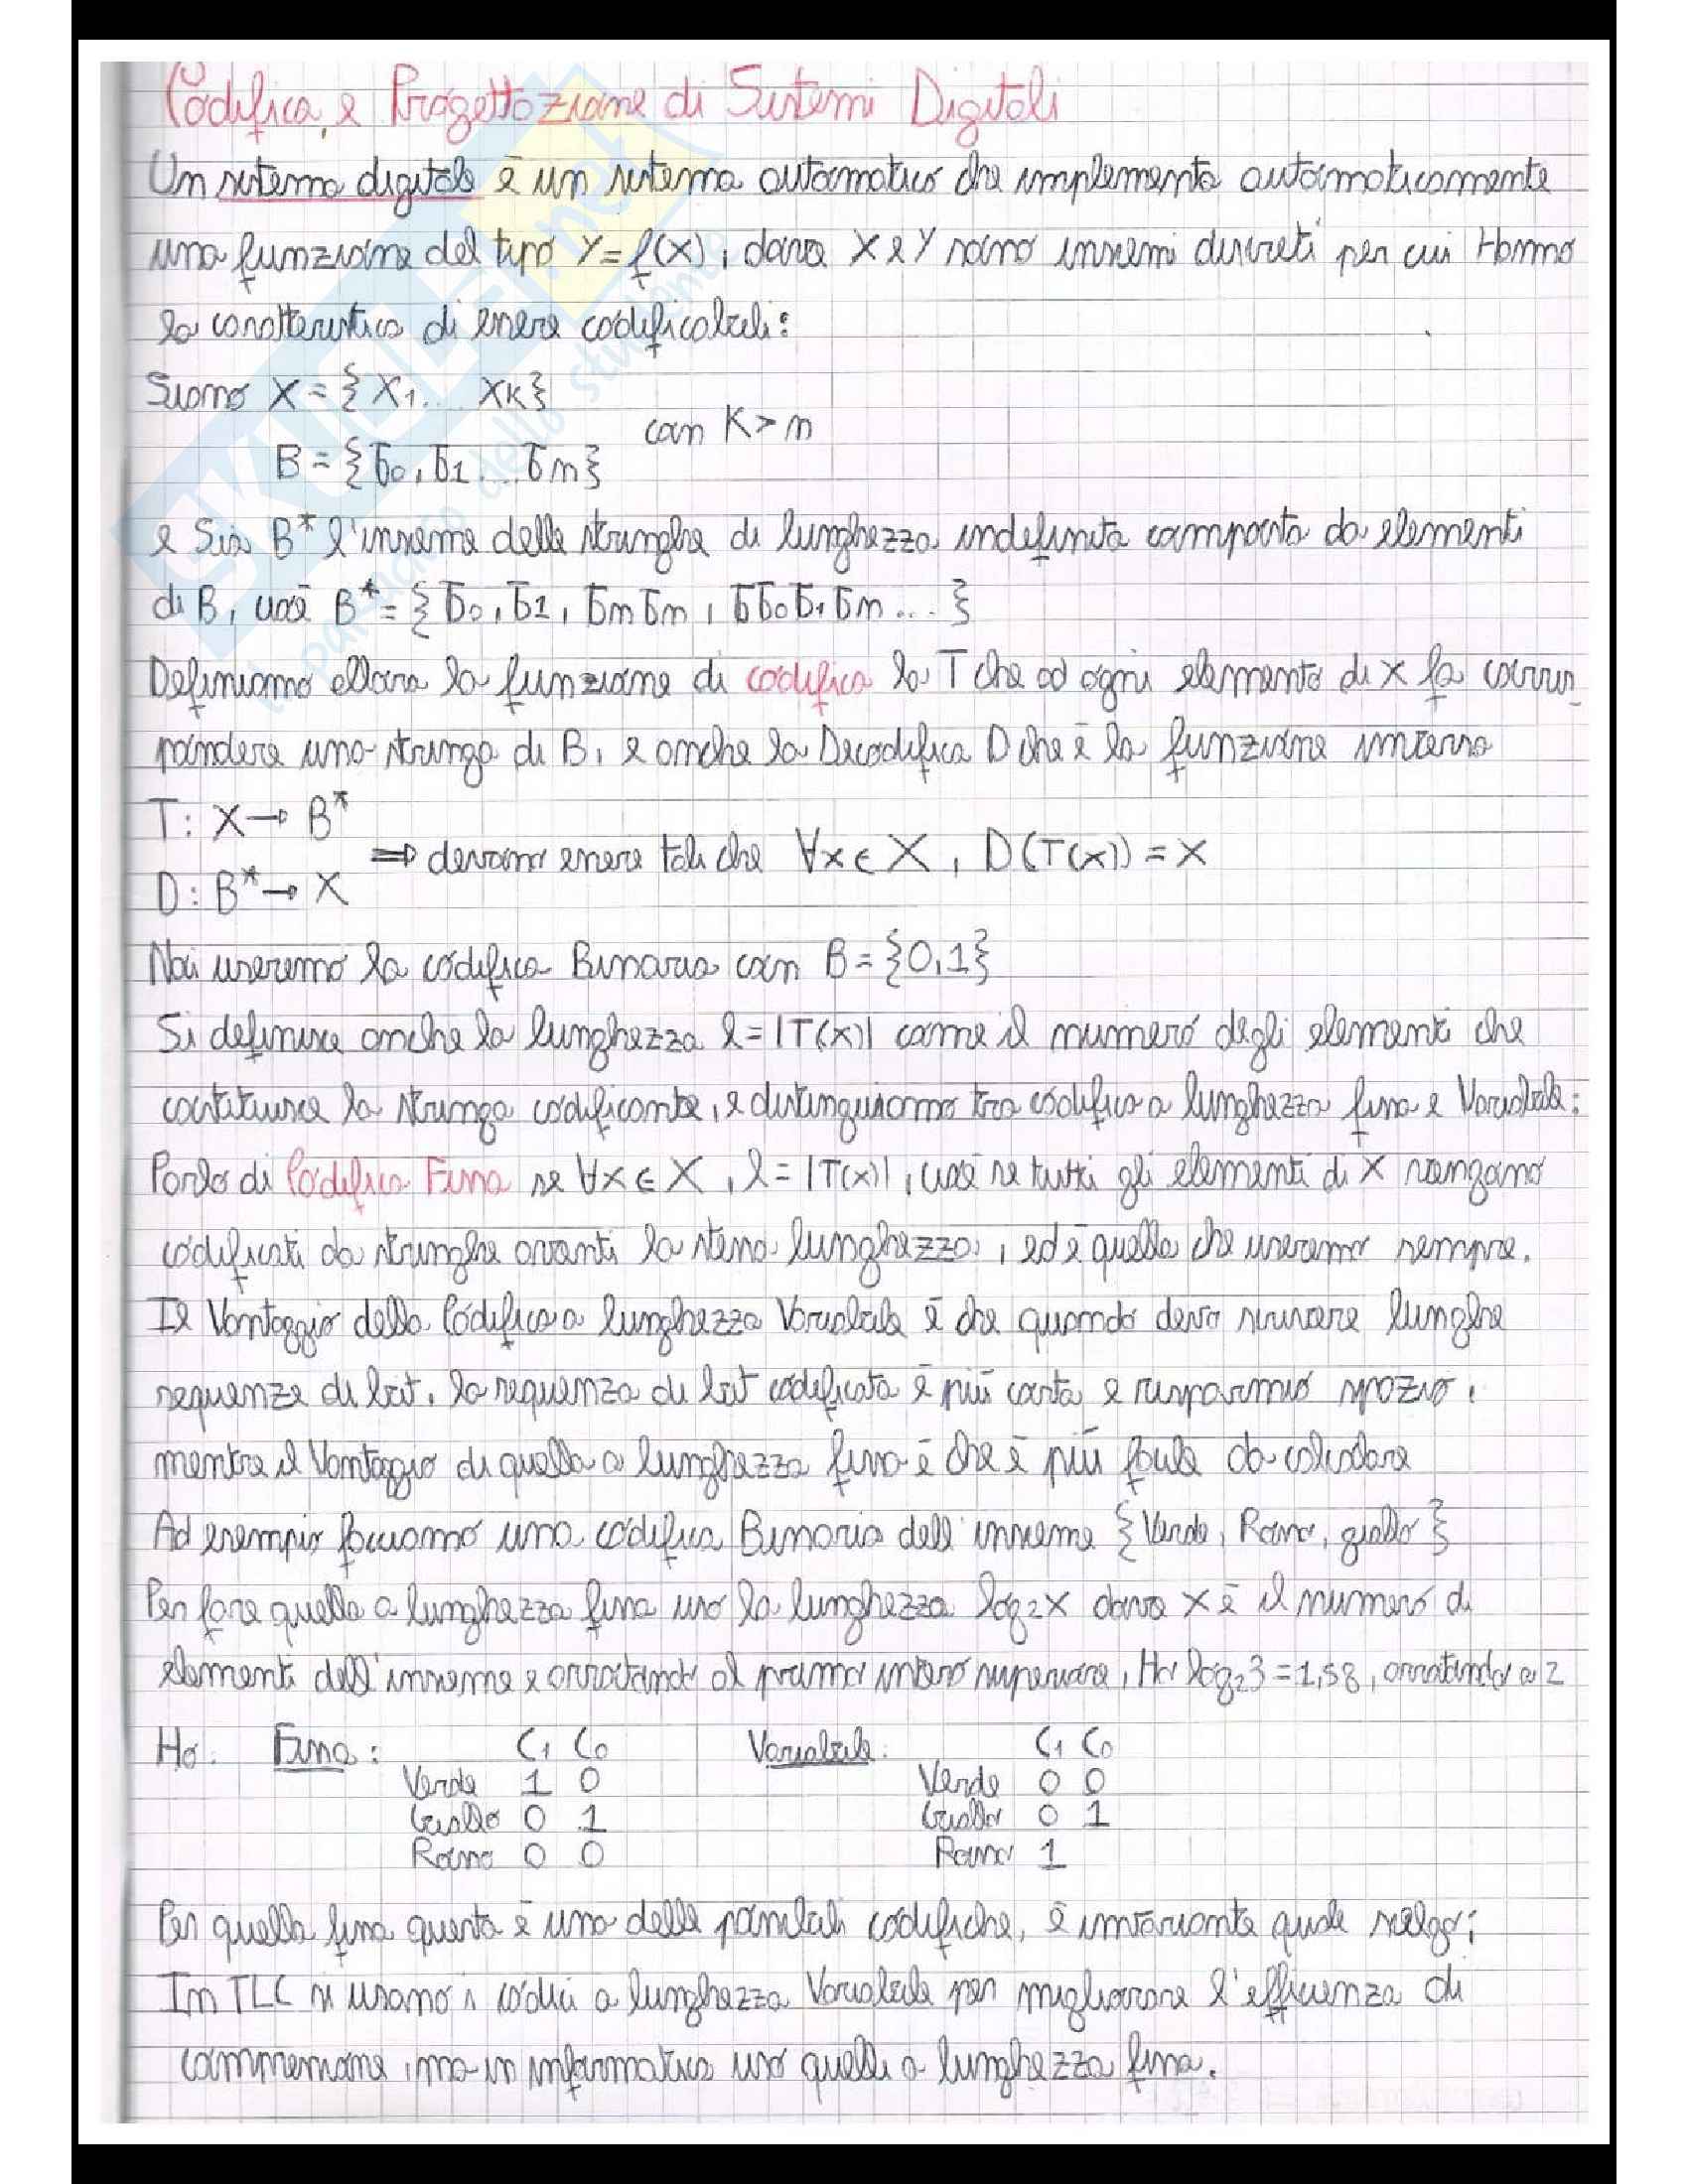 Codifica e Progettazione di Sistemi Digitali
Un sistema digitale è un sistema automatico che implementa automaticamente
una funzione del tipo Y=f(X), dove X e Y sono insiemi discreti per cui Hanno
la caratteristica di essere codificabili:
Siano X = {X1... XK}
con K > n
B = {b0, b1 ... bn}
e Sia B* l'insieme delle stringhe di lunghezza indefinita composta da elementi
di B, cioè B* = {b0, b1, bnbn, bb0b1bn ... }
Definiamo allora la funzione di codifica la T che ad ogni elemento di X fa corris
pondere una stringa di B, e anche la Decodifica D che è la funzione inversa
T: X → B*
⇒ devono essere tali che ∀x ∈ X, D(T(x)) = X
D: B* → X
Noi useremo la codifica Binaria con B = {0,1}
Si definisce anche la lunghezza l = |T(x)| come il numero degli elementi che
costituisce la stringa codificante, e distinguiamo tra codifica a lunghezza fissa e Variabile:
Parlo di Codifica Fissa se ∀x ∈ X, l = |T(x)|, cioè se tutti gli elementi di X vengono
codificati da stringhe aventi la stessa lunghezza, ed è quella che useremo sempre.
Il Vantaggio della Codifica a lunghezza Variabile è che quando devo scrivere lunghe
sequenze di bit, la sequenza di bit codificata è più corta e risparmio spazio,
mentre il Vantaggio di quella a lunghezza fissa è che è più facile da calcolare
Ad esempio facciamo una codifica Binaria dell'insieme {Verde, Rosso, giallo}
Per fare quella a lunghezza fissa uso la lunghezza log2X dove X è il numero di
elementi dell'insieme e arrotondo al primo intero superiore, Ho log23 = 1,58, arrotondo a 2
Ho: Fissa: C1 C0 Variabile: C1 C0
Verde 1 0 Verde 0 0
Giallo 0 1 Giallo 0 1
Rosso 0 0 Rosso 1
Per quella fissa questa è una delle possibili codifiche, è invariante quale scelgo;
In TLC si usano i codici a lunghezza Variabile per migliorare l'efficienza di
commessione, ma in informatica uso quelli a lunghezza fissa.
SKUOLA.net
il paradiso dello studente